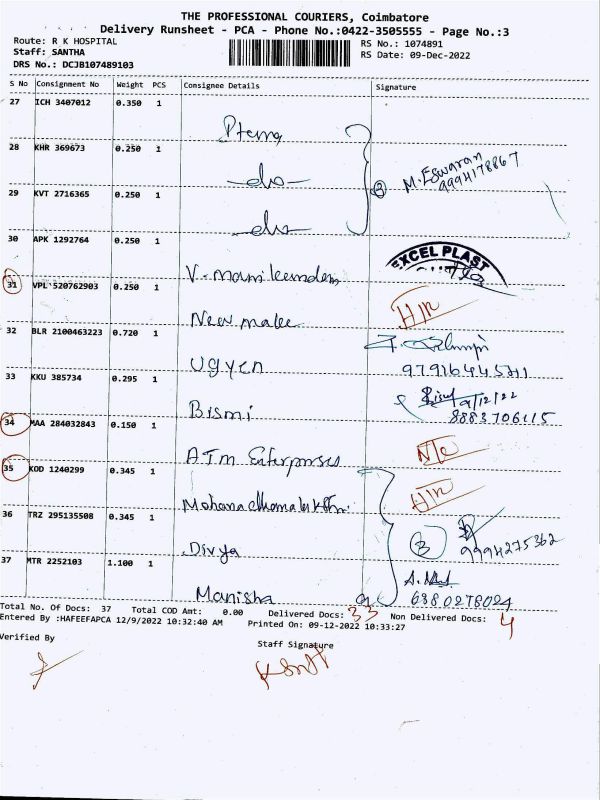 THE PROFESSIONAL COURIERS, Coimbatore
Delivery Runsheet - PCA - Phone No.:0422-3505555 - Page No.:3
Route: R K HOSPITAL
Staff: SANTHA
DRS No.: DCJB107489103
RS No.: 1074891
RS Date: 09-Dec-2022
S No Consignment No Weight PCS Consignee Details Signature
27 ICH 3407012 0.350 1
28 KHR 369673 0.250 1
-do-
M. Eswaran
9994178867
3
29 KVT 2716365 0.250 1
-do-
30 APK 1292764 0.250 1
EXCEL PLAST
31 VPL 520762903 0.250 1
New malee
H/R
32 BLR 2100463223 0.720 1
Ugyen
97916445711
33 KKU 385734 0.295 1
Bismi
9/12/22
8883706115
34 MAA 284032843 0.150 1
ATM Enterprises
N/C
35 KOD 1240299 0.345 1
H/R
36 TRZ 295135508 0.345 1
Divya
3
9994275362
37 MTR 2252103 1.100 1
Manisha
6380278024
Total No. Of Docs: 37 Total COD Amt: 0.00 Delivered Docs: 33 Non Delivered Docs: 4
Entered By :HAFEEFAPCA 12/9/2022 10:32:40 AM Printed On: 09-12-2022 10:33:27
Verified By
Staff Signature